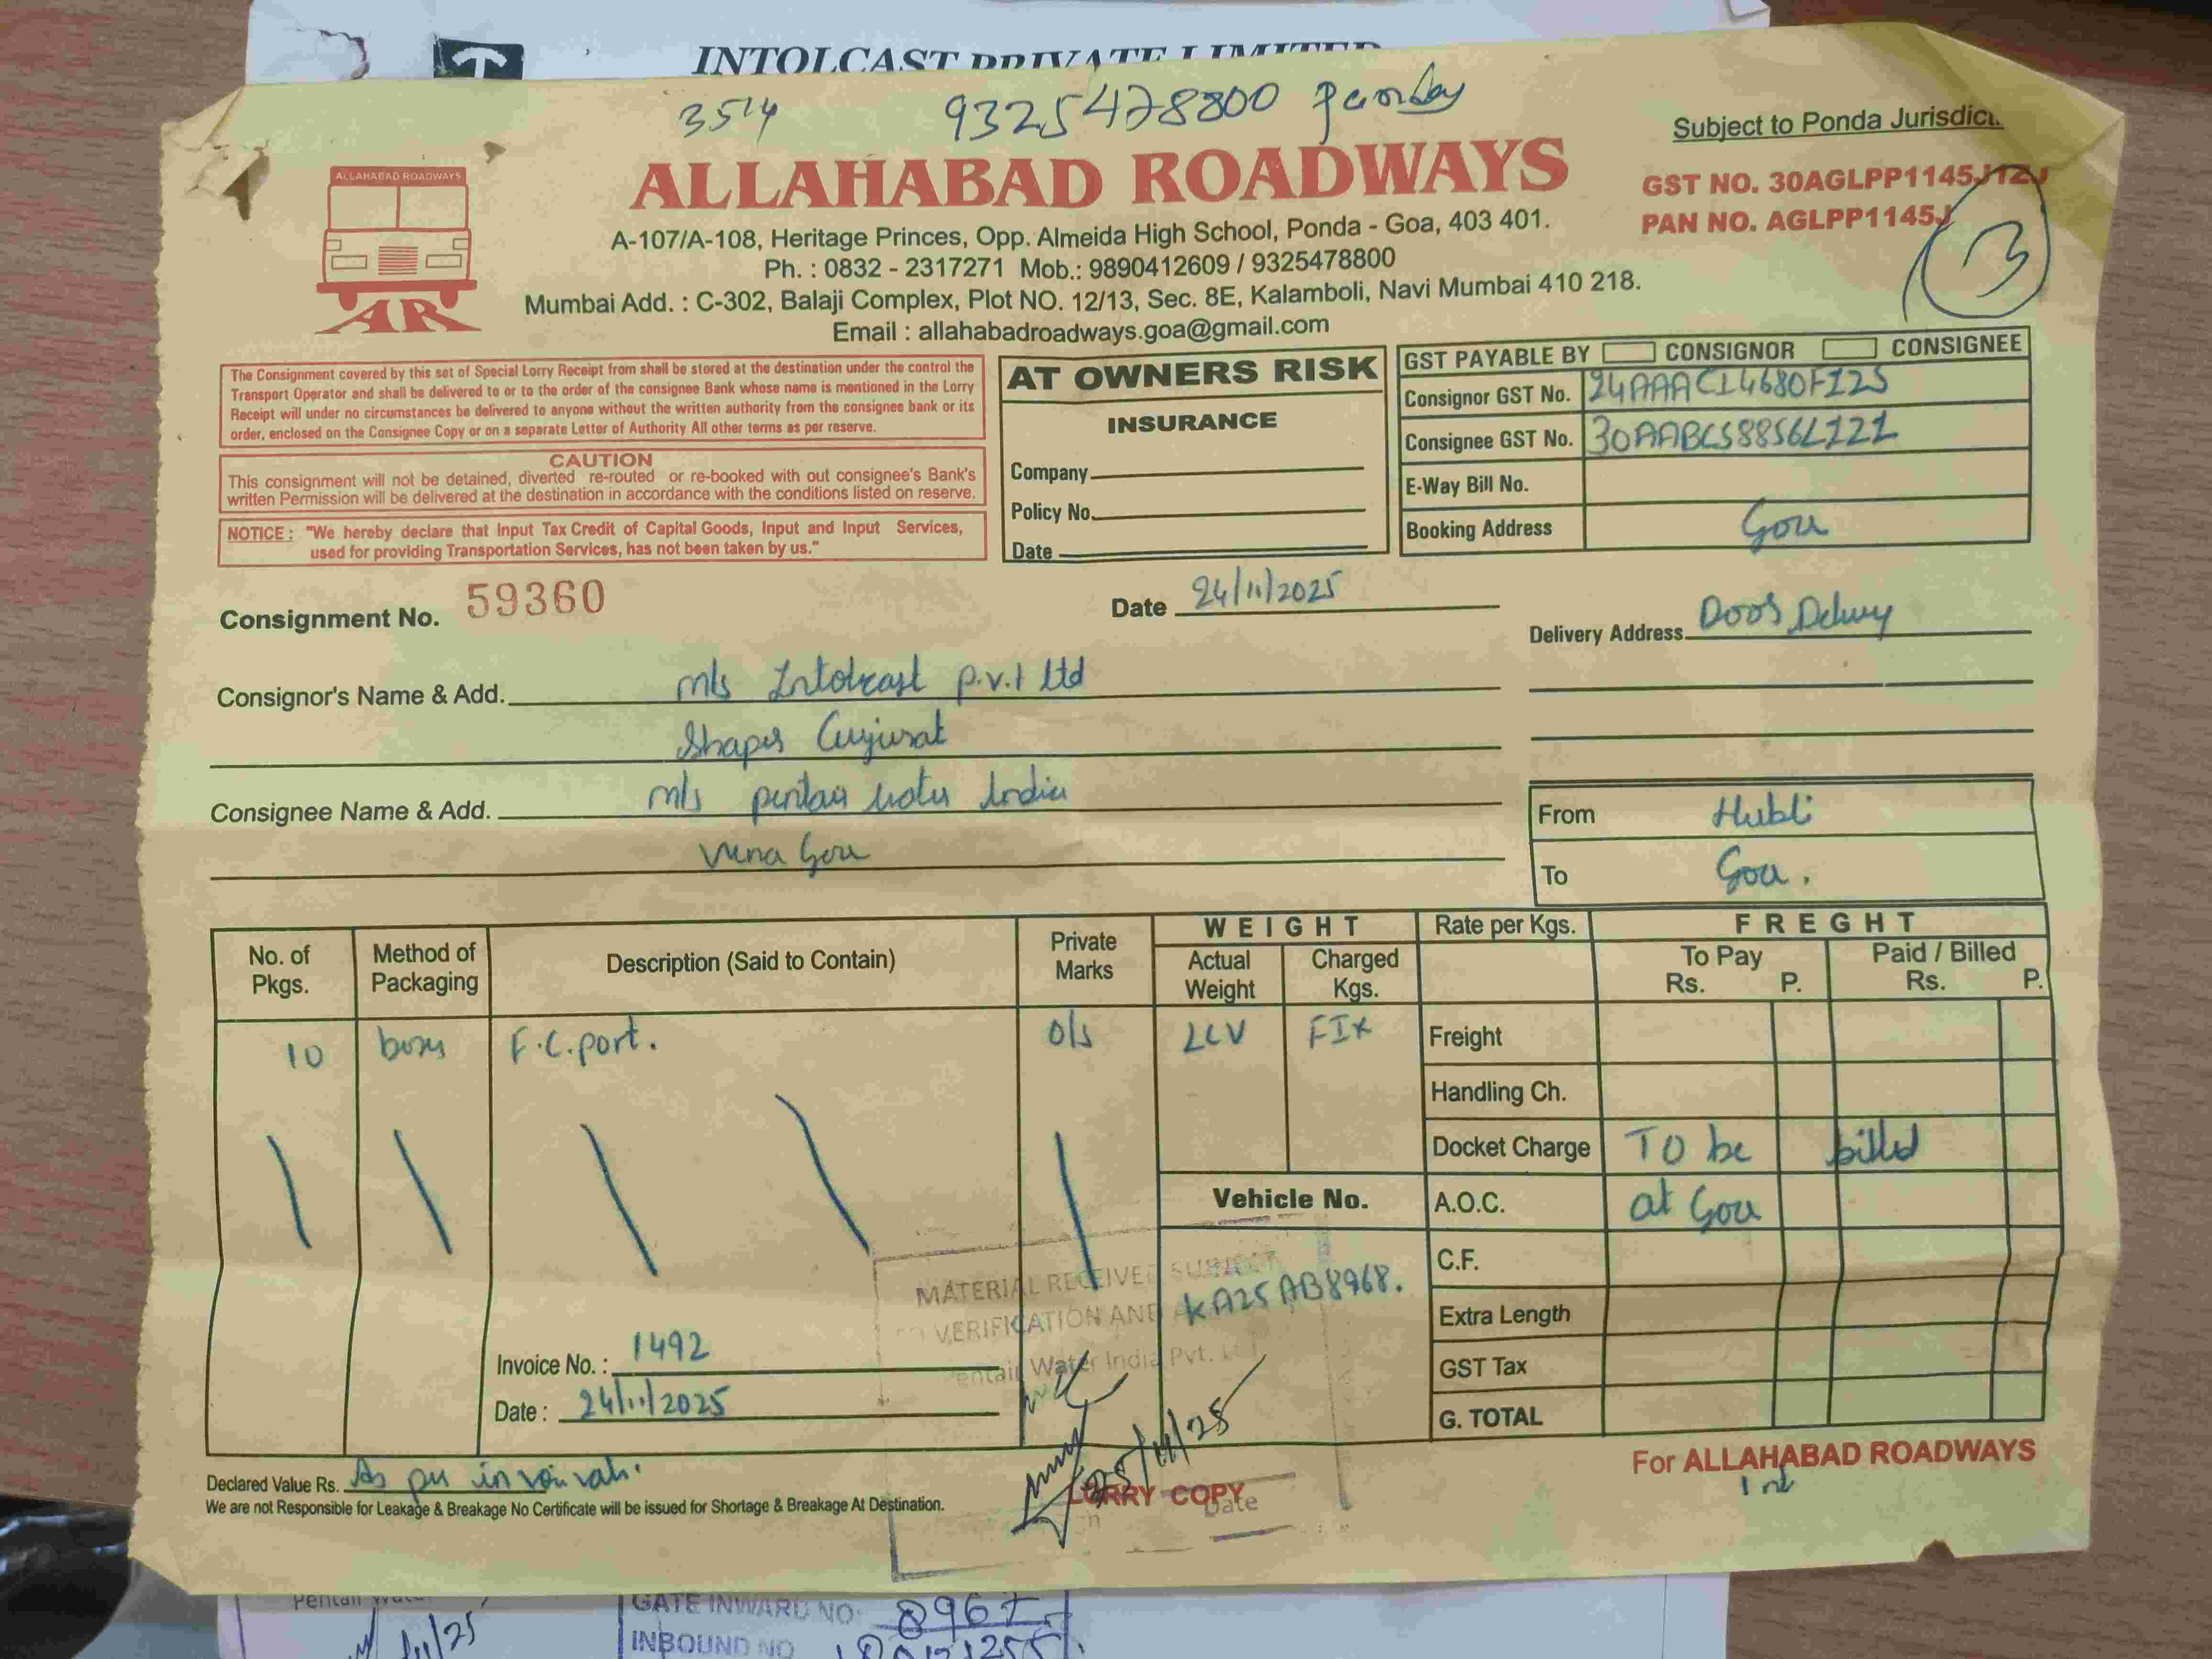 INTOLCAST PRIVATE LIMITED
3514 9325478800 Pandey
Subject to Ponda Jurisdict
ALLAHABAD ROADWAYS
ALLAHABAD ROADWAYS
AR
GST NO. 30AGLPP1145J1ZJ
PAN NO. AGLPP1145J
3
A-107/A-108, Heritage Princes, Opp. Almeida High School, Ponda - Goa, 403 401.
Ph. : 0832 - 2317271 Mob.: 9890412609 / 9325478800
Mumbai Add. : C-302, Balaji Complex, Plot NO. 12/13, Sec. 8E, Kalamboli, Navi Mumbai 410 218.
Email : allahabadroadways.goa@gmail.com
The Consignment covered by this set of Special Lorry Receipt from shall be stored at the destination under the control the
Transport Operator and shall be delivered to or to the order of the consignee Bank whose name is mentioned in the Lorry
Receipt will under no circumstances be delivered to anyone without the written authority from the consignee bank or its
order, enclosed on the Consignee Copy or on a separate Letter of Authority All other terms as per reserve.
CAUTION
This consignment will not be detained, diverted re-routed or re-booked with out consignee's Bank's
written Permission will be delivered at the destination in accordance with the conditions listed on reserve.
NOTICE : "We hereby declare that Input Tax Credit of Capital Goods, Input and Input Services,
used for providing Transportation Services, has not been taken by us."
AT OWNERS RISK
INSURANCE
Company
Policy No.
Date
GST PAYABLE BY CONSIGNOR CONSIGNEE
Consignor GST No. 24AAACI4680F1ZS
Consignee GST No. 30AABCS8856L1Z1
E-Way Bill No.
Booking Address Goa
Consignment No. 59360
Date 24/11/2025
Delivery Address Door Delivery
Consignor's Name & Add. M/s Intolcast P.v.t Ltd
Shaper Gujurat
Consignee Name & Add. M/s pentair water India
Verna Goa
From Hubli
To Goa.
No. of Pkgs. Method of Packaging Description (Said to Contain) Private Marks WEIGHT Actual Weight Charged Kgs. Rate per Kgs. FREGHT To Pay Rs. P. Paid / Billed Rs. P.
10 boxes F.C.port. O/s LCV FIX
Freight
Handling Ch.
Docket Charge To be billed
Vehicle No.
A.O.C. at Goa
KA25AB8968.
C.F.
Extra Length
GST Tax
G. TOTAL
MATERIAL RECEIVED SUBJECT
TO VERIFICATION AND
Pentair Water India Pvt. Ltd
Invoice No. : 1492
Date : 24/11/2025
25/11/25
Date
Declared Value Rs. As per invoice
We are not Responsible for Leakage & Breakage No Certificate will be issued for Shortage & Breakage At Destination.
LORRY COPY
For ALLAHABAD ROADWAYS
Pentair
11/25
GATE INWARD NO. 8967
INBOUND NO